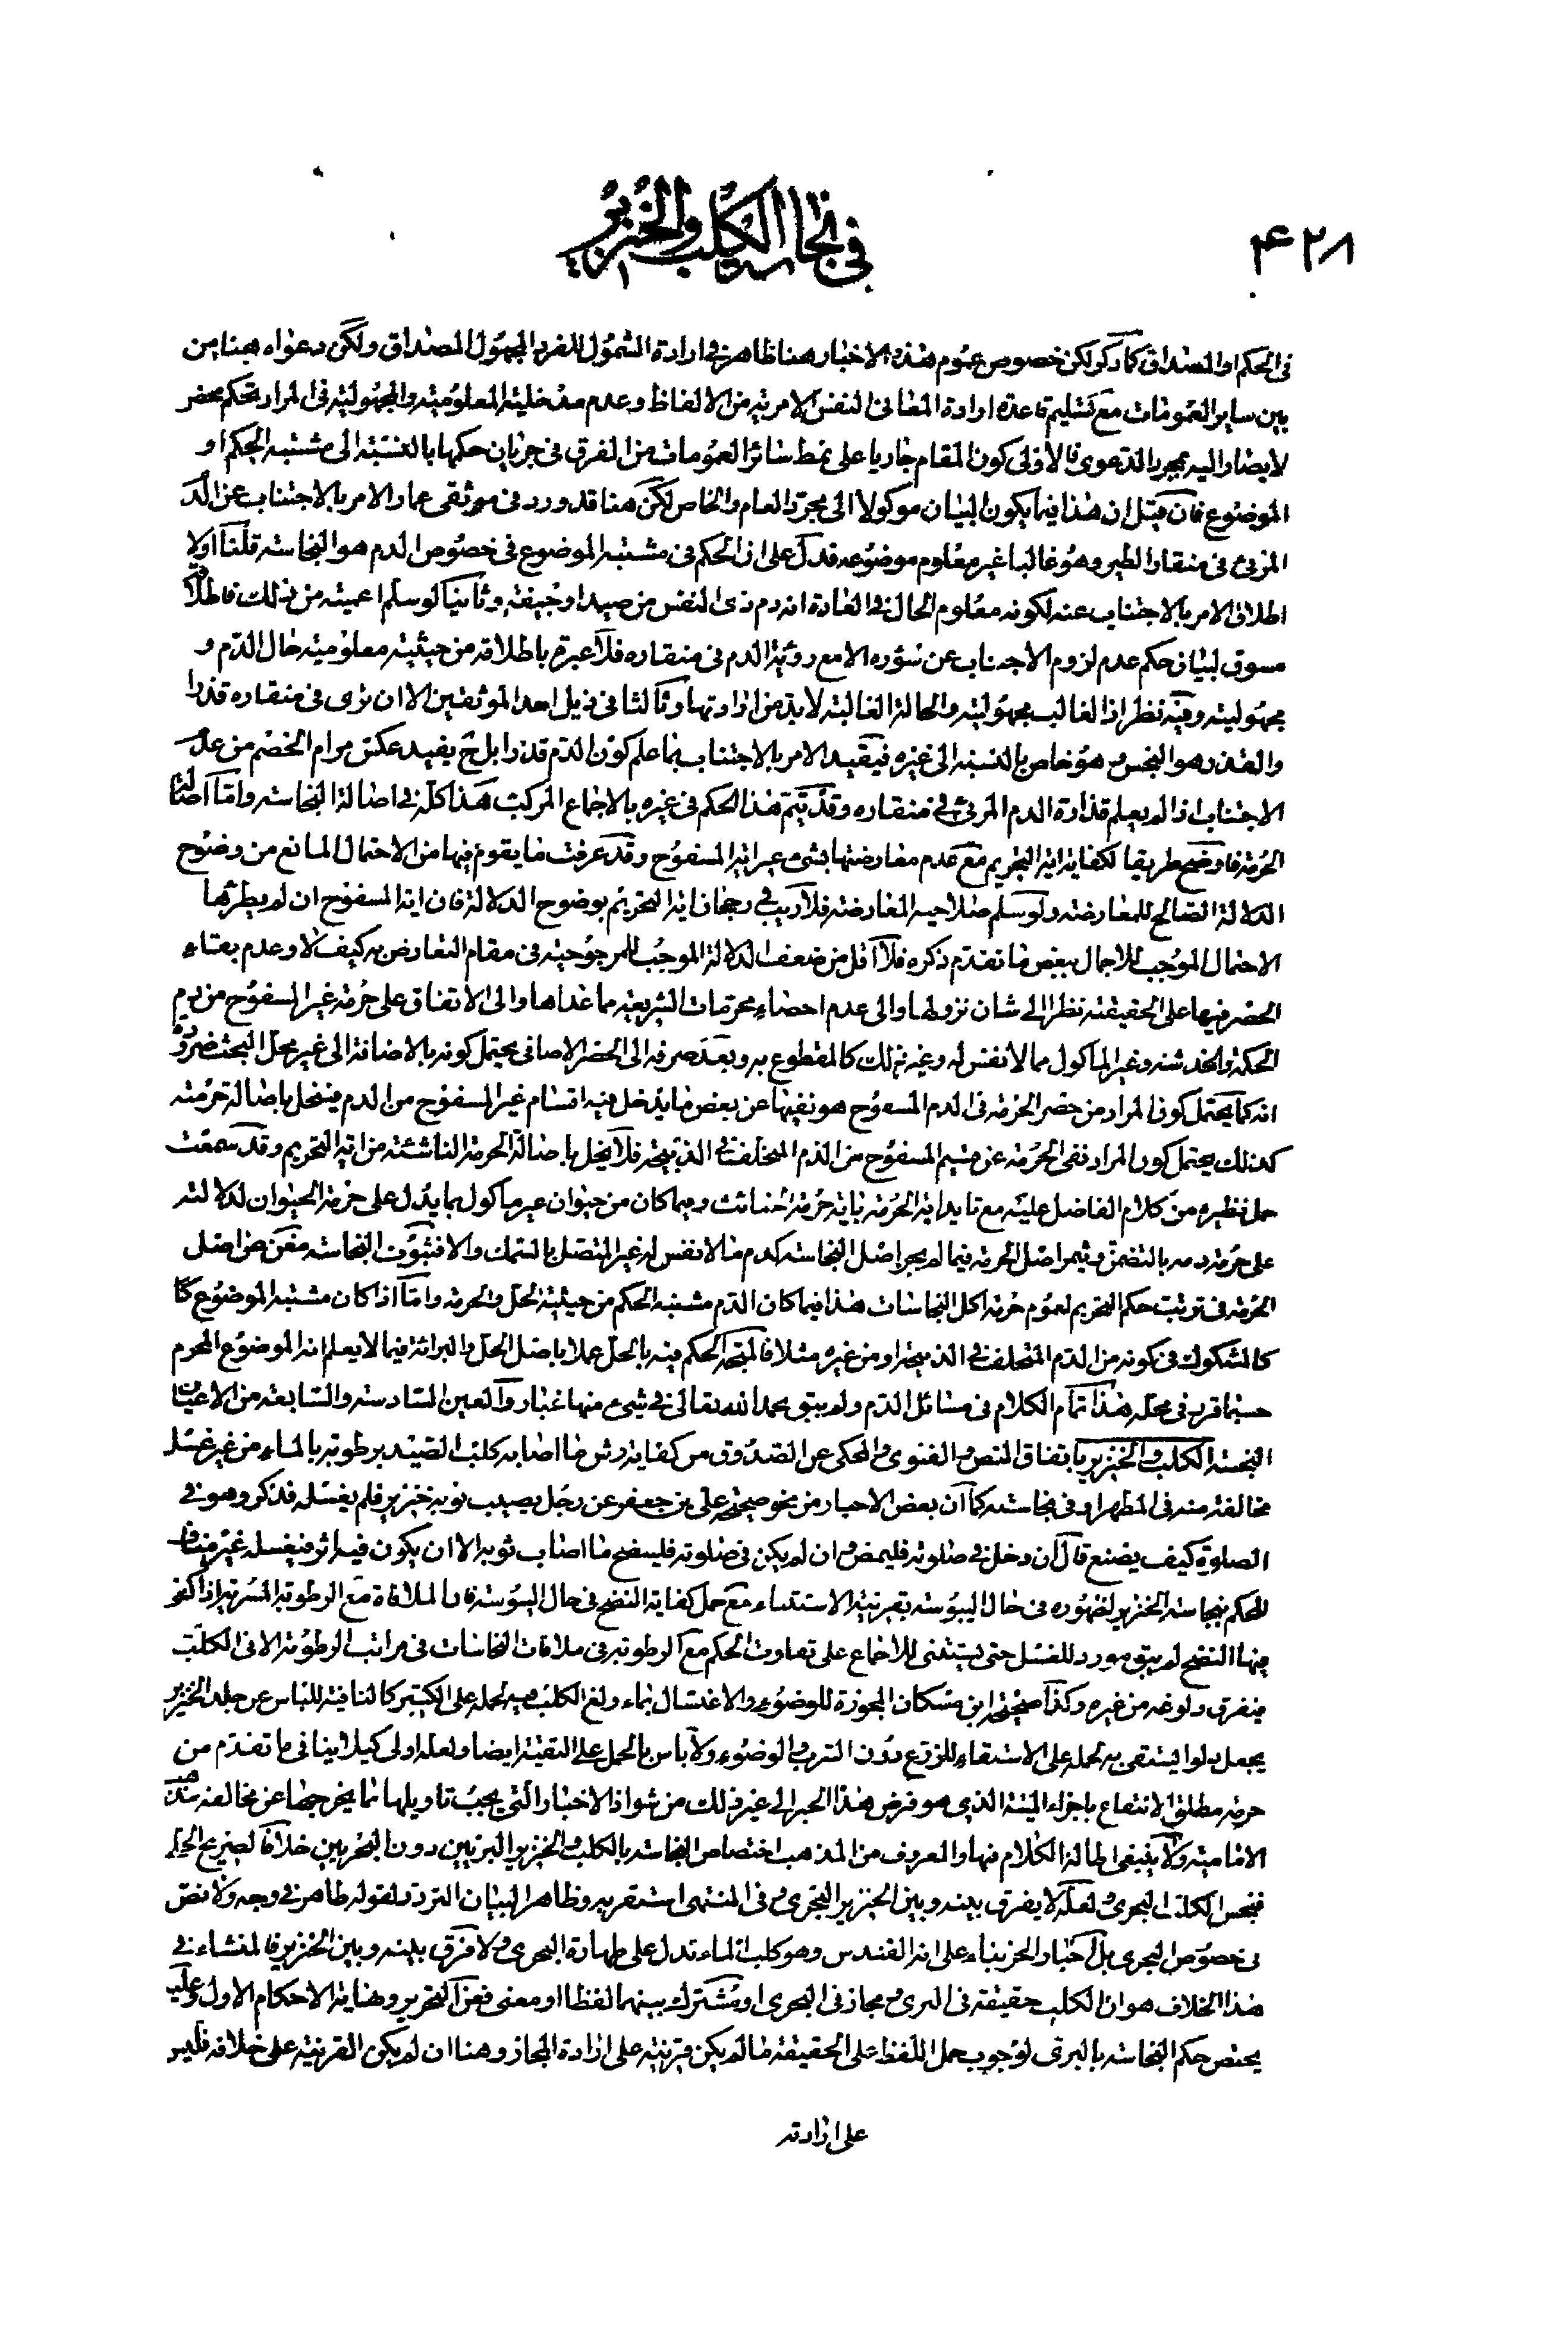 ۴۲۸
في نجاسة الكلب والخنزير
في الحكم او المصداق كما ذكر لكن خصوص عموم هذه الاخبار هنا ظاهر في ارادة الشمول للفرد المجهول المصداق ولكن دعواه هنا من
بين ساير العمومات مع تسليم قاعدة ارادة المعاني النفس الامرية من الالفاظ وعدم مدخلية المعلومية والمجهولية في المراد تحكم محض
لا يصار اليه بمجرد الدعوى فالاولى كون المقام جاريا على نمط سائر العمومات من الفرق في جريان حكمها بالنسبة الى مشتبه الحكم او
الموضوع فان قيل ان هذا فيما يكون البيان موكولا الى مجرد العام والخاص لكن هنا قد ورد في موثقي عمار الامر بالاجتناب عن الدم
المرئي في منقار الطير وهو غالبا غير معلوم موضوعه فدل على ان الحكم في مشتبه الموضوع في خصوص الدم هو النجاسة قلنا اولا
اطلاق الامر بالاجتناب عنه لكونه معلوم الحال في العادة انه دم ذي النفس من صيد او جيفة وثانيا لو سلم اعميته من ذلك فاطلاقه
مسوق لبيان حكم عدم لزوم الاجتناب عن سؤره الا مع روية الدم في منقاره فلا عبرة باطلاقه من حيثية معلومية حال الدم و
مجهوليته وفيه نظر اذ الغالب مجهوليته والحالة الغالبة لابد من ارادتها وثالثا في ذيل احد الموثقين الا ان ترى في منقاره قذرا
والقذر هو النجس وهو خاص بالنسبة الى غيره فيقيد الامر بالاجتناب بما علم كون الدم قذرا بل ح يفيد عكس مرام الخصم من عدم
الاجتناب اذا لم يعلم قذارة الدم المرئي في منقاره وقد يتم هذا الحكم في غيره بالاجماع المركب هذا كله في اصالة النجاسة واما اصالة
الحرمة فاوضح طريقا لكفاية اية التحريم مع عدم معارضتها بشئ غير اية المسفوح وقد عرفت ما يقوم فيها من الاحتمال المانع من وضوح
الدلالة الصالح للمعارضة ولو سلم صلاحية المعارضة فلا ريب في رجحان اية التحريم بوضوح الدلالة فان اية المسفوح ان لم يطرئها
الاحتمال الموجب للاجمال ببعض ما تقدم ذكره فلا اقل من ضعف الدلالة الموجب للمرجوحية في مقام التعارض به كيف لا وعدم بقاء
الحصر فيها على الحقيقة نظرا الى شان نزولها والى عدم احصاء محرمات الشريعة مما عداها والى الاتفاق على حرمة غير المسفوح من دم
الحكة والخدشة وغير المأكول مما لا نفس له وغير ذلك كالمقطوع به وبعد صرفه الى الحصر الاضافي يحتمل كونه بالاضافة الى غير محل البحث ضرورة
انه كما يحتمل كون المراد من حصر الحرمة في الدم المسفوح هو نفيها عن بعض ما يدخل فيه اقسام غير المسفوح من الدم فيخل باصالة حرمته
كذلك يحتمل كون المراد نفي الحرمة عن قسيم المسفوح من الدم المتخلف في الذبيحة فلا يخل باصالة الحرمة الناشئة من اية التحريم وقد سمعت
حمل نظيره من كلام الفاضل عليه مع تايد اية الحرمة باية حرمة الخبائث وبما كان من حيوان غير مأكول بما يدل على حرمة الحيوان لدلالته
على حرمة دمه بالتضمن ويثمر اصل الحرمة فيما لم يجر اصل النجاسة كدم ما لا نفس له غير المتصل بالسمك والا فثبوت النجاسة مغن عن اصل
الحرمة في ترتب حكم التحريم لعموم حرمة اكل النجاسات هذا فيما كان الدم مشتبه الحكم من حيثية الحل والحرمة واما اذا كان مشتبه الموضوع
كالمشكوك في كونه من الدم المتخلف في الذبيحة او من غيره مثلا فالمتجه الحكم فيه بالحل عملا باصل الحل والبرائة فيما لا يعلم انه الموضوع المحرم
حسبما قرر في محله هذا تمام الكلام في مسائل الدم ولم يبق بحمد الله تعالى في شئ منها غبار والعين السادسة والسابعة من الاعيان
النجسة الكلب والخنزير باتفاق النص والفتوى والمحكي عن الصدوق من كفاية رش ما اصابه كلب الصيد برطوبة بالماء من غير غسل
مخالفة منه في المطهر لا في نجاسته كما ان بعض الاخبار من نحو صحيحة علي بن جعفر عن رجل يصيب ثوبه خنزير فلم يغسله فذكر وهو في
الصلوة كيف يصنع قال ان دخل في صلوته فليمض وان لم يكن في صلوته فلينضح ما اصاب ثوبه الا ان يكون فيه اثر فيغسله غير مناف
للحكم بنجاسة الخنزير لظهوره في حال اليبوسة بقرينة الاستثناء مع حمل كفاية النضح في حال اليبوسة فان الملاقاة مع الرطوبة المسرية اذا كفى
فيها النضح لم يبق مورد للغسل حتى يستثنى للاجماع على تفاوت الحكم مع الرطوبة في ملاقات النجاسات في مراتب الرطوبة الا في الكلب
فيفرق ولوغه من غيره وكذا صحيحة ابن مسكان المجوزة للوضوء والاغتسال بماء ولغ الكلب فيه لحمله على الكثير كالنافية للباس عن جلد الخنزير
يجعل دلوا يستقى به لحمله على الاستقاء للزرع دون الشرب والوضوء ولا باس بالحمل على التقية ايضا ولعله اولى كيلا ينافي ما تقدم من
حرمة مطلق الانتفاع باجزاء الميتة الذي هو فرض هذا الخبر الى غير ذلك من شواذ الاخبار التي يجب تاويلها بما يخرجها عن مخالفة مذهب
الامامية ولا ينبغي اطالة الكلام فيها والمعروف من المذهب اختصاص النجاسة بالكلب والخنزير البريين دون البحريين خلافا لصريح الحلي
فنجس الكلب البحري ولعله لا يفرق بينه وبين الخنزير البحري وفي المنتهى استقربه وظاهر البيان التردد لقوله ظاهر في وجه ولا نص
في خصوص البحري بل اخبار الخز بناء على انه القندس وهو كلب الماء تدل على طهارة البحري ولا فرق بينه وبين الخنزير فالمنشاء في
هذا الخلاف هو ان الكلب حقيقة في البري ومجاز في البحري او مشترك بينهما لفظا او معنى فعن التحرير ونهاية الاحكام الاول وعليه
يختص حكم النجاسة بالبري لوجوب حمل اللفظ على الحقيقة ما لم يكن قرينة على ارادة المجاز وهنا ان لم يكن القرينة على خلافه فليس
على ارادته